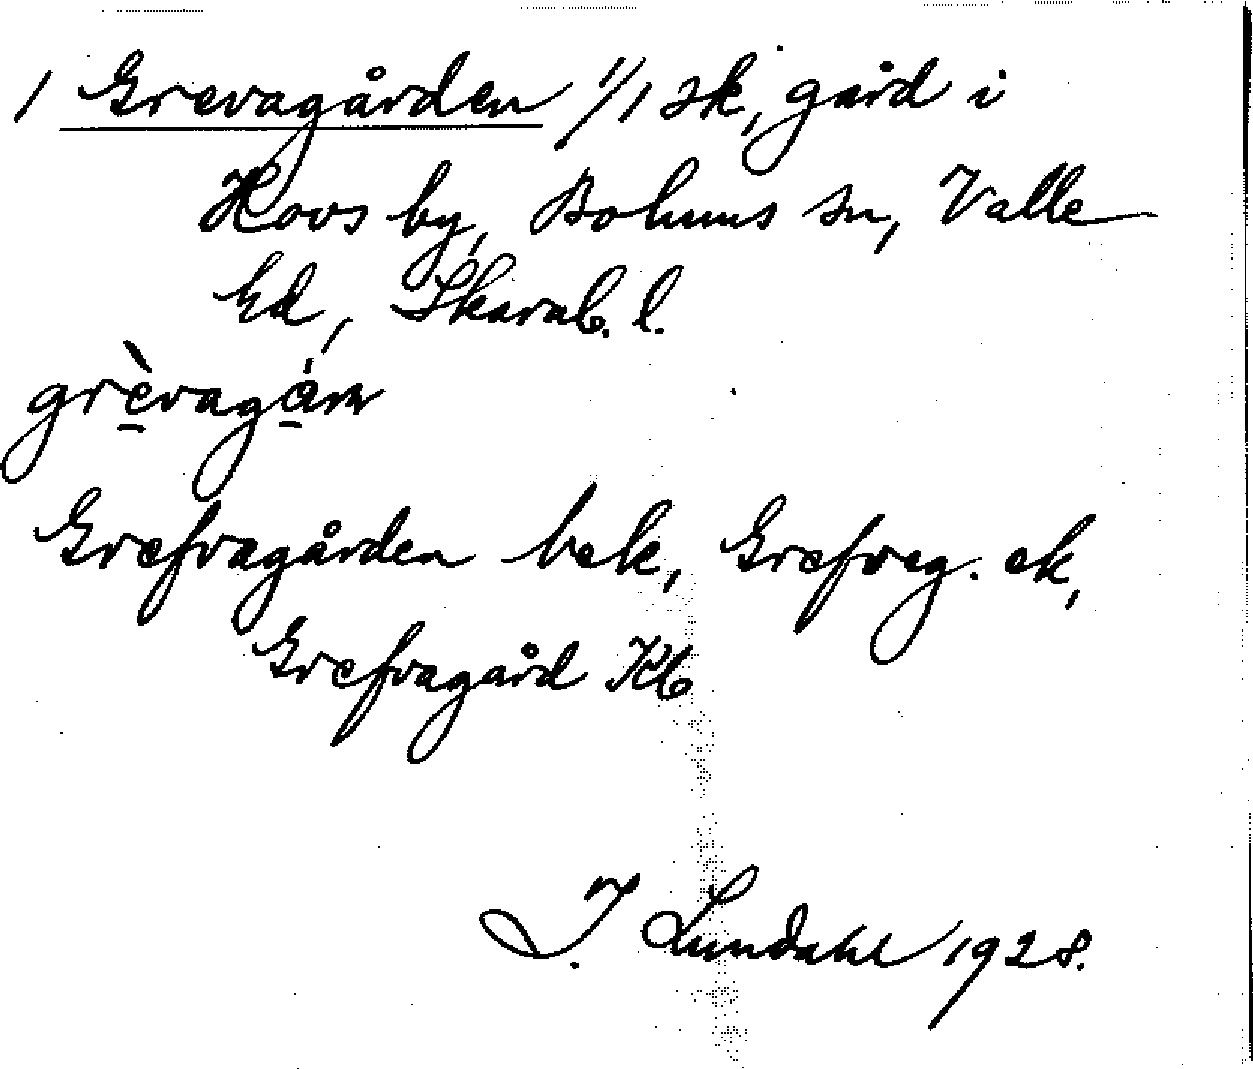 1 Grevagården 1/1 sk, gård i
Hovs by, Bolums sn, Valle
hd, Skarab. l.
grèvagárn
Grefvagården bek, Grefvag. ek,
Grefvagård Kb
I. Lundahl 1928.